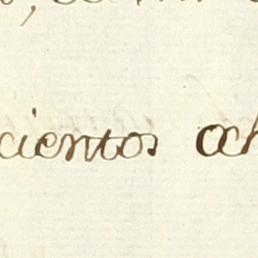 cientos och